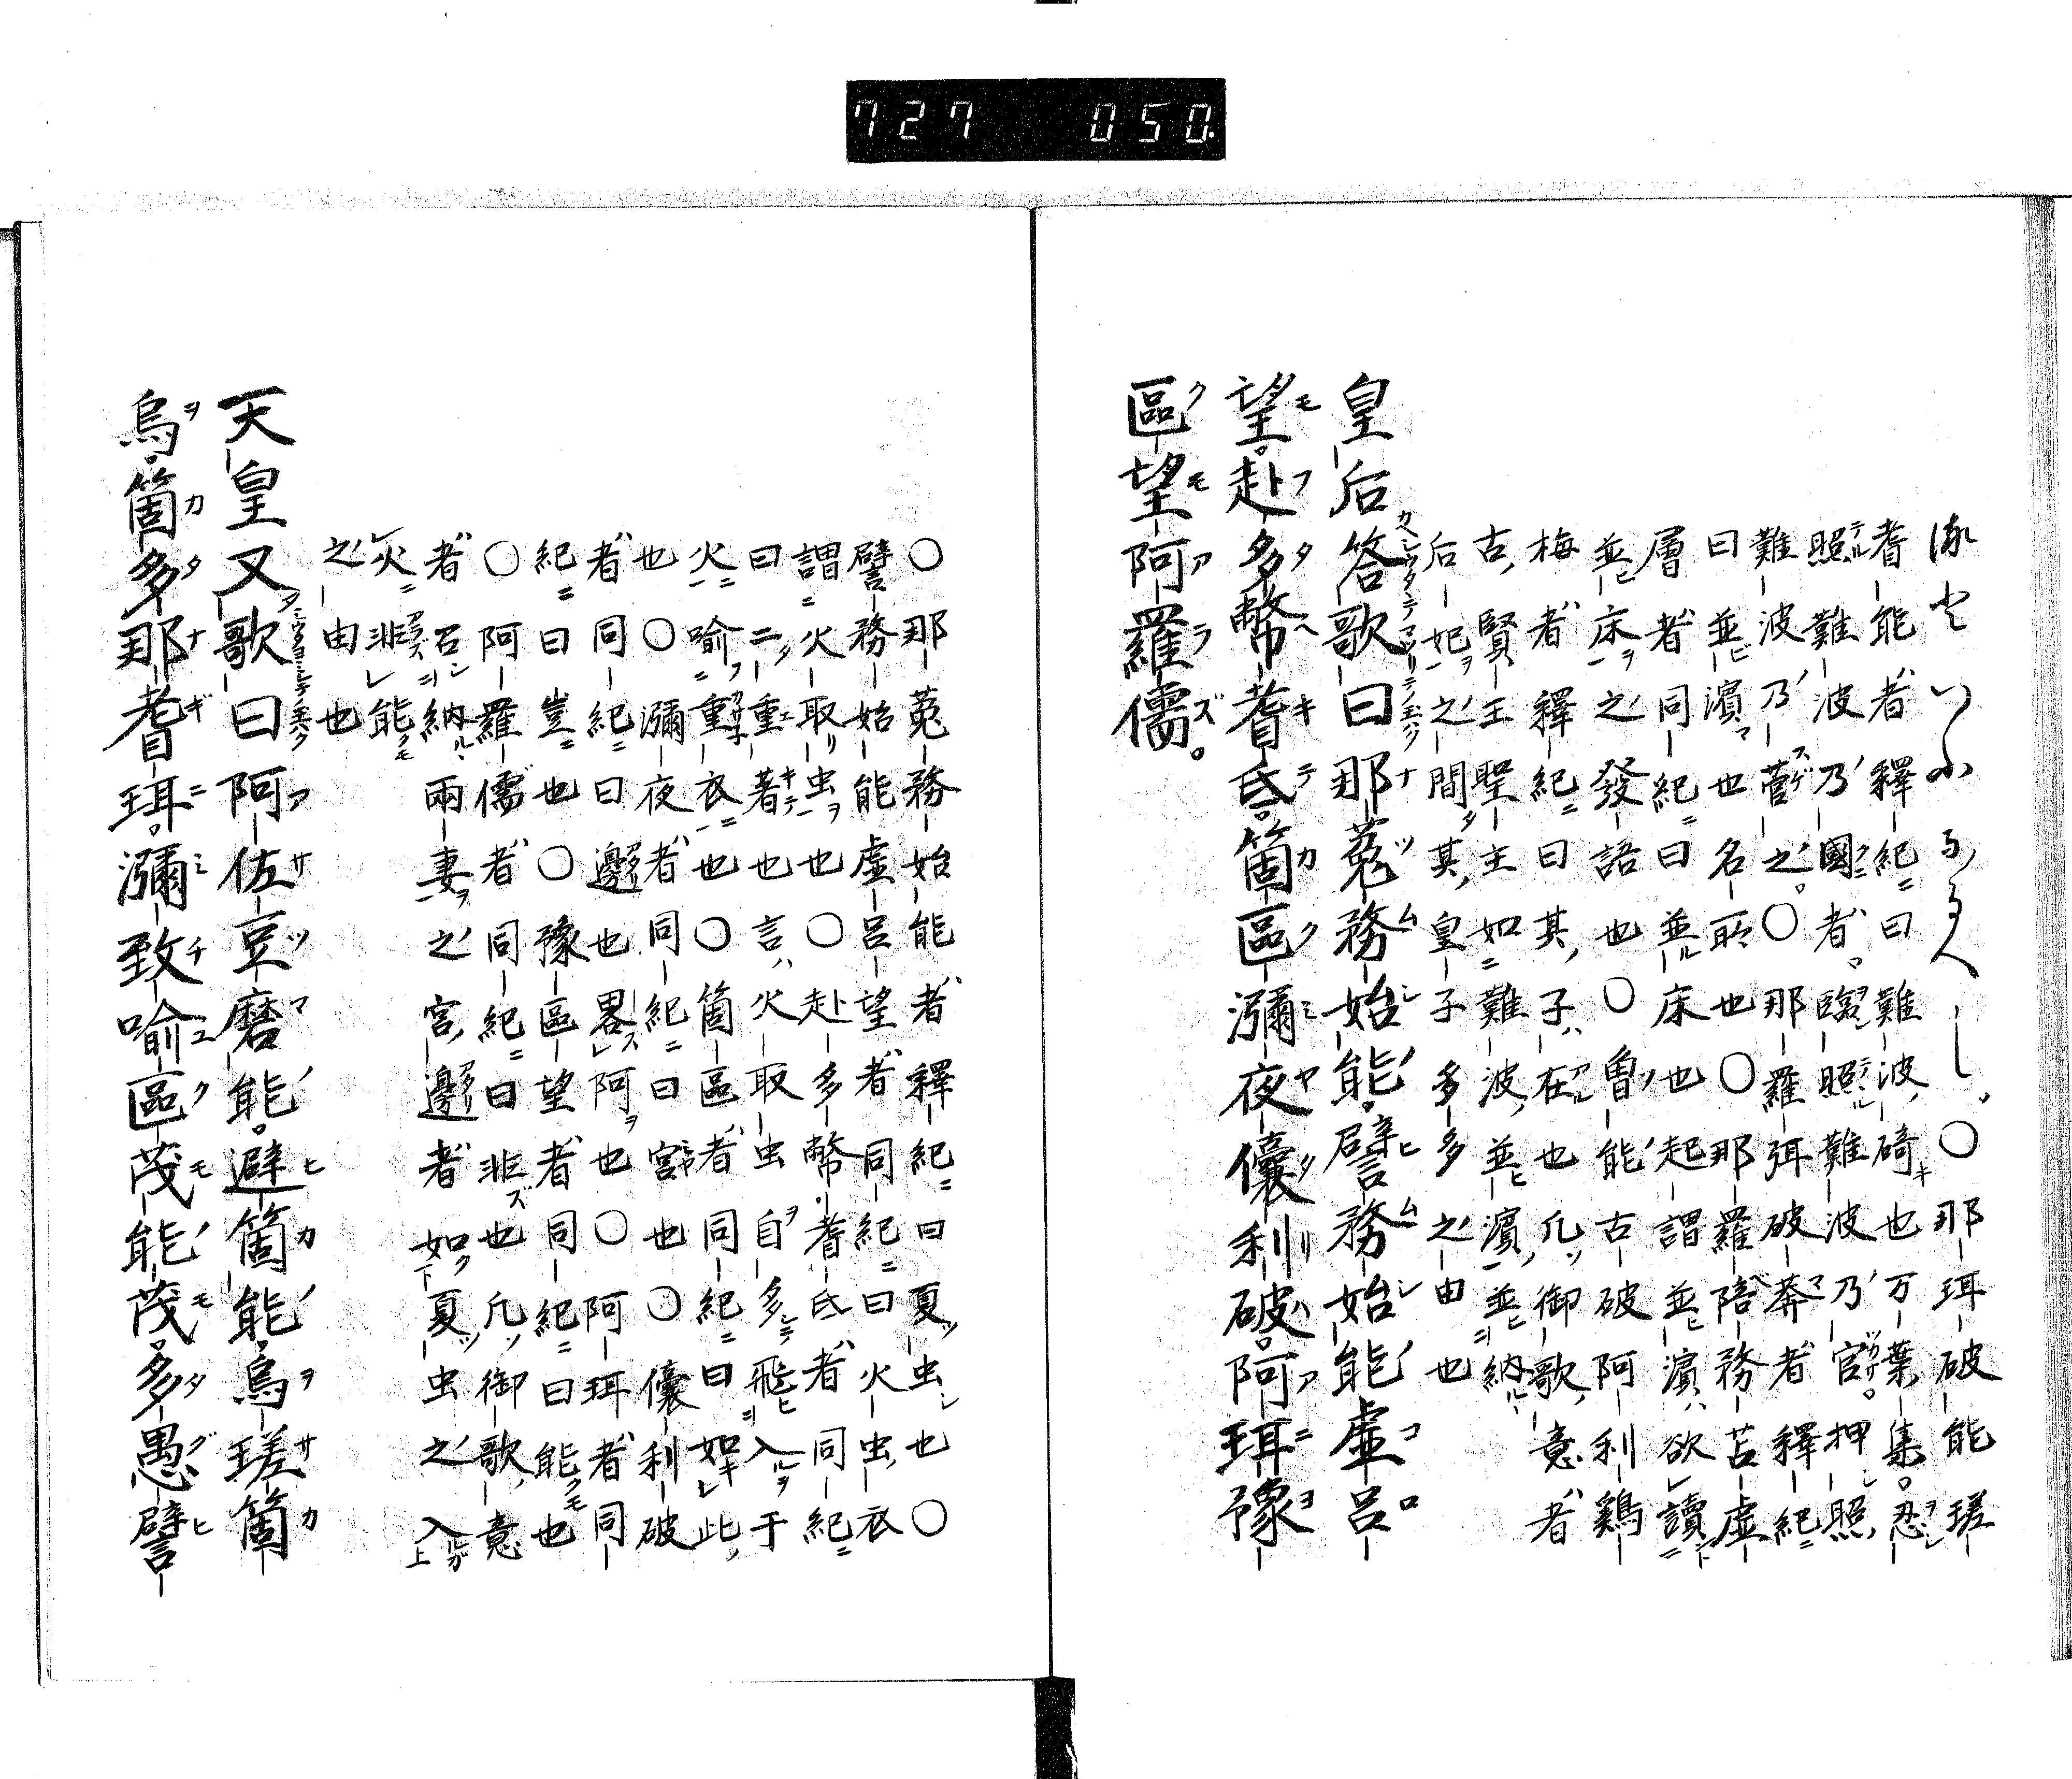 727 050.
〇那珥破能瑳
耆能者釋紀曰難波碕也万葉集忍
照難波乃國者臨照難波乃官押照
難波乃菅之〇那羅弭破莽者釋紀
曰並濱也名所也〇那羅陪務苫虚
層者同紀曰並床也起謂並濱欲讀
並床之發語也〇曽能古破阿利鶏
梅者釋紀曰其子在也凡御歌意者
古賢王聖主如難波並濱並納
后妃之間其皇子多多之由也
皇后答歌曰那菟務始能譬務始能虚呂
望赴多幣耆氐箇區瀰夜儾利破阿珥豫
區望阿羅儒
〇那菟務始能者釋紀曰夏虫也〇
譬務始能虚呂望者同紀曰火虫衣
謂火取虫也〇赴多幣耆氐者同紀
曰二重著也言火取虫自多飛入于
火喻重衣也〇箇區者同紀曰如此
也〇瀰夜者同紀曰宮也〇儾利破
者同紀曰邊也畧阿也〇阿珥者同
紀曰豈也〇豫區望者同紀曰能也
〇阿羅儒者同紀曰非也凡御歌意
者召納兩妻之宮邊者如夏虫之入
火非能也
之由也
天皇又歌曰阿佐豆磨能避箇能烏瑳箇
烏箇多那耆珥瀰致喻區茂能茂多愚譬